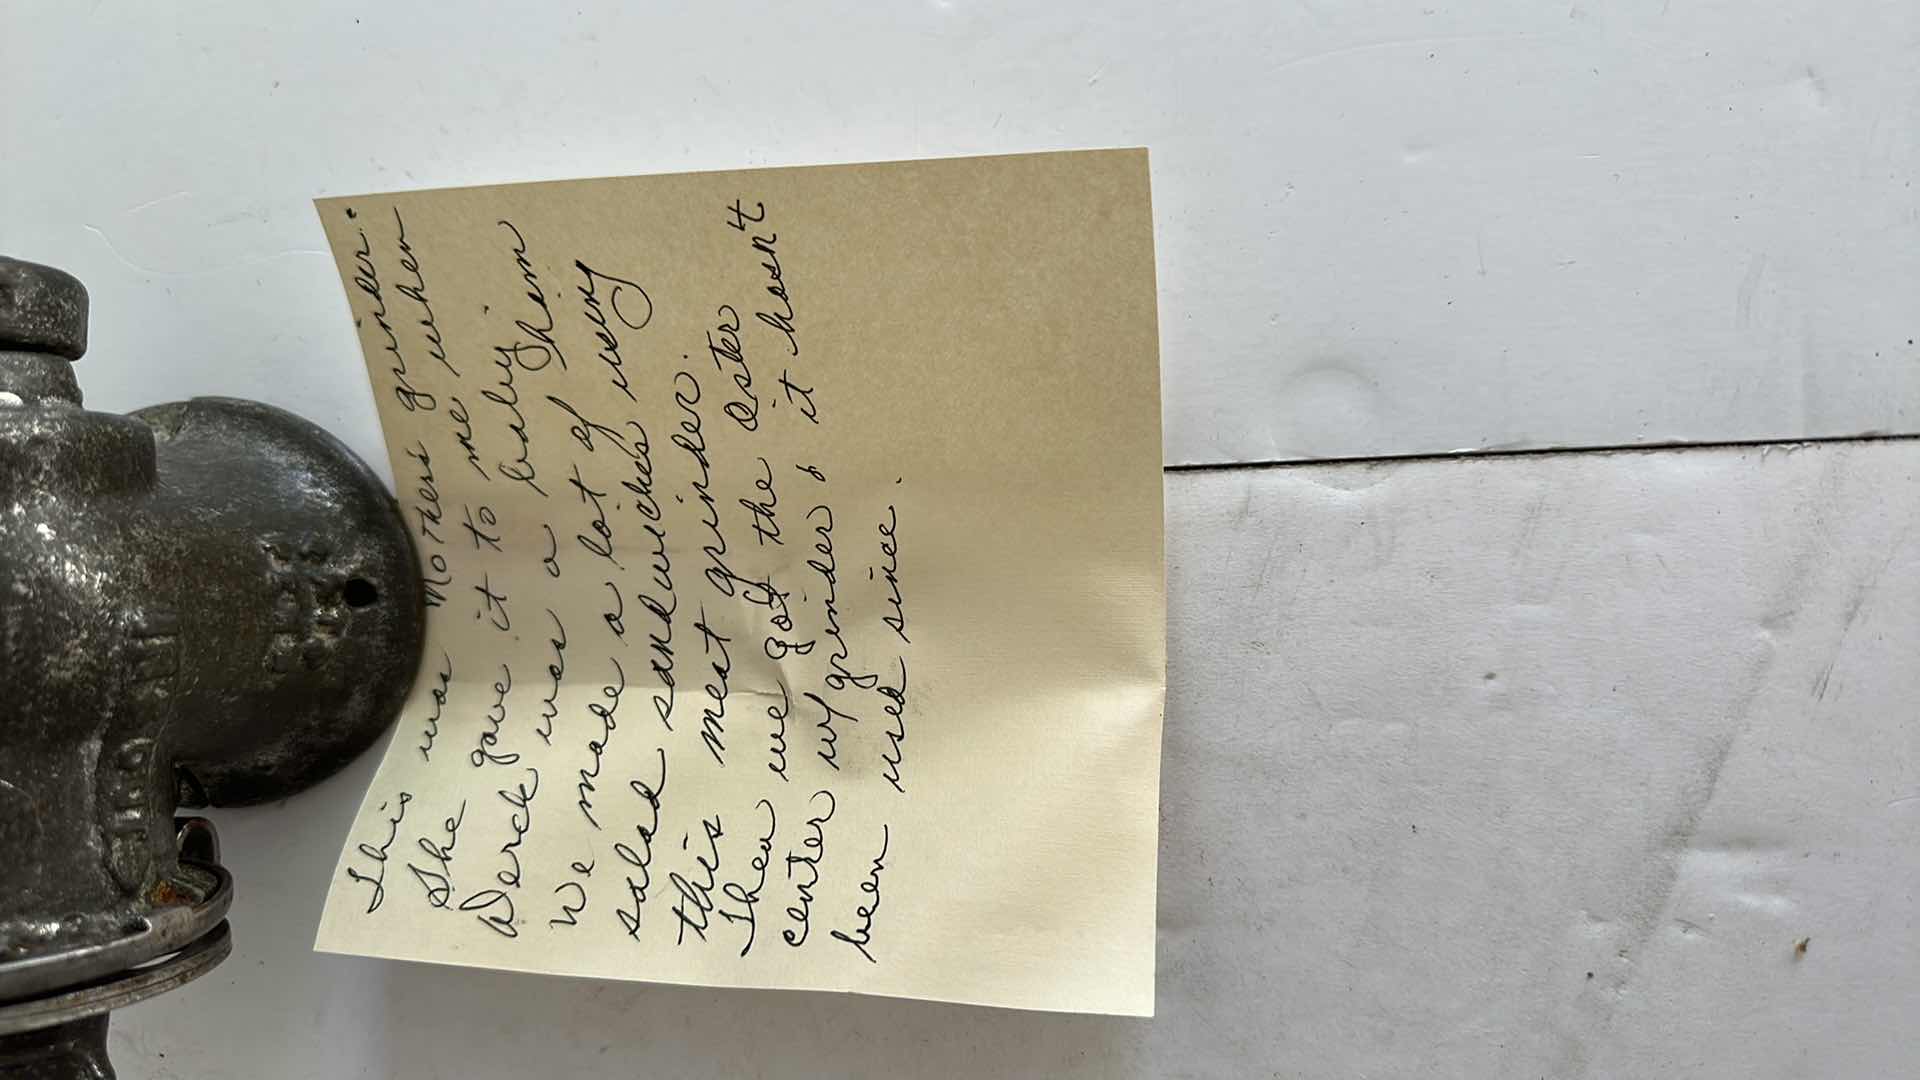 This was Mothers grinder.
She gave it to me when
Derek was a baby.
We made a lot of ham
salad sandwiches using
this meat grinder.
Then we got the Oster
center w/ grinder & it hasn't
been used since.